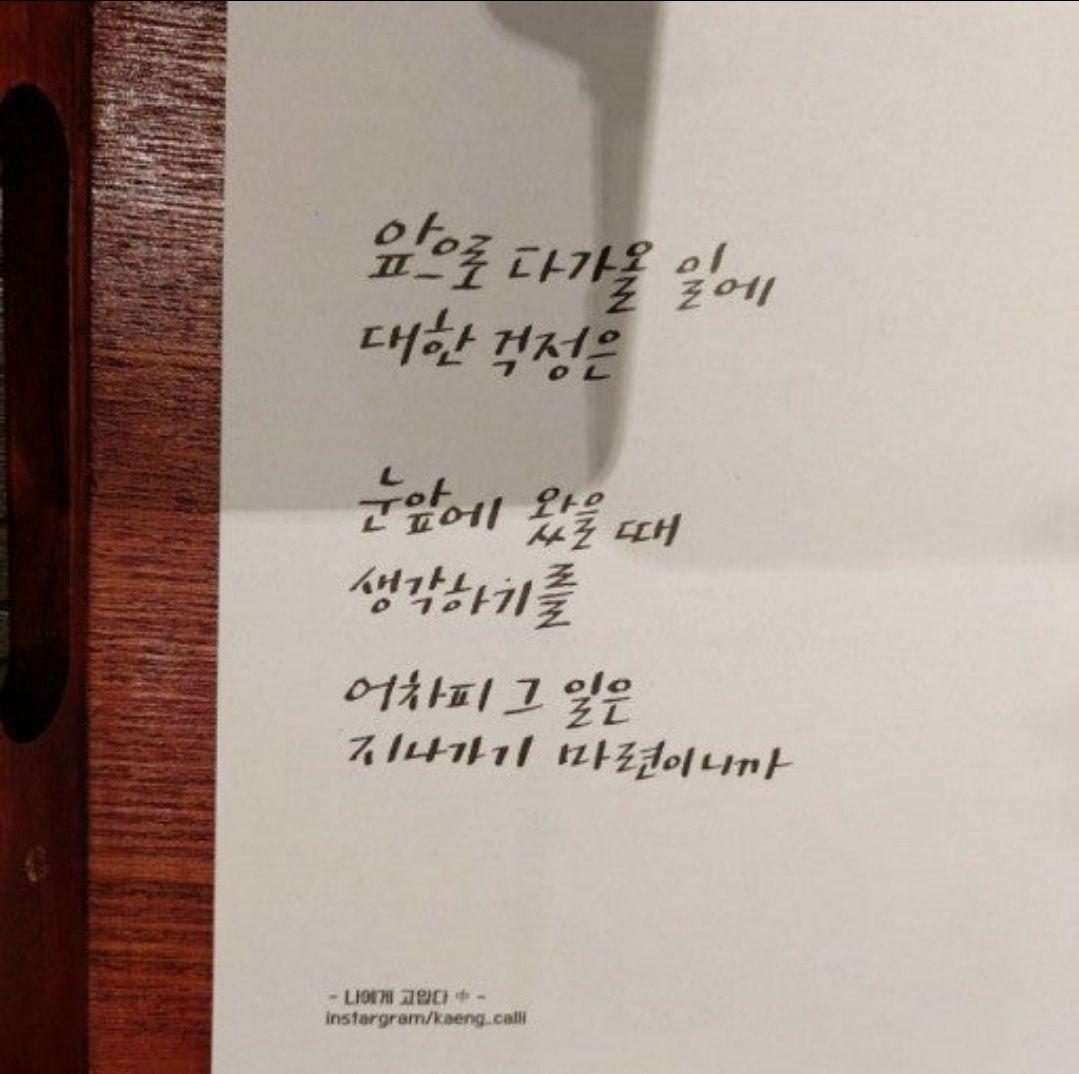 앞으로 다가올 일에
대한 걱정은
눈앞에 왔을 때
생각하기를
어차피 그 일은
지나가기 마련이니까
- 나에게 고맙다 中 -
instargram/kaeng_calli